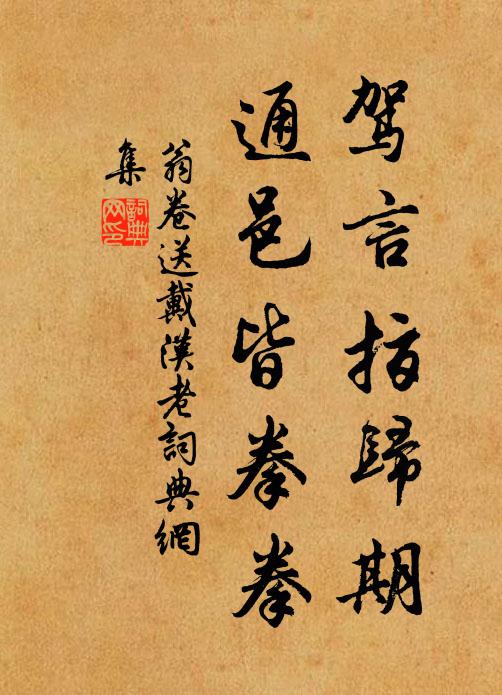 駕言指歸期
通邑皆拳拳
翁卷送戴漢老詞典網
集
詞典
网印